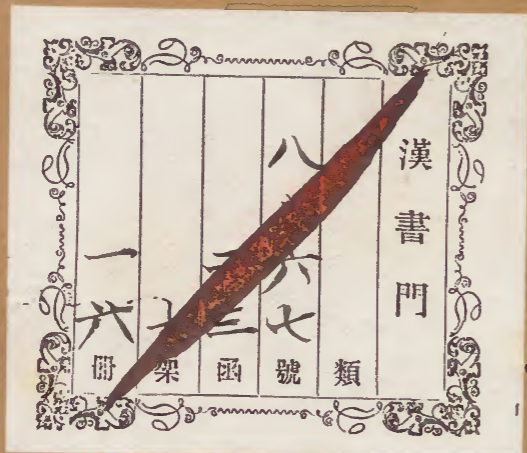 漢書門
類
八六七號
三函
架
一六冊